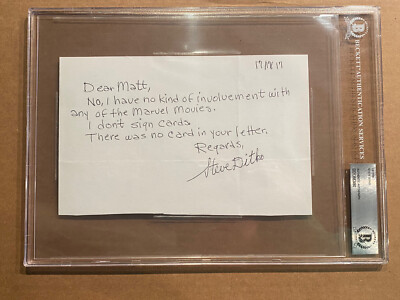 17/11/17
Dear Matt,
No, I have no kind of involvement with
any of the Marvel Movies.
I dont sign cards
There was no card in your letter.
Regards,
Steve Ditko
BECKETT AUTHENTICATION SERVICES